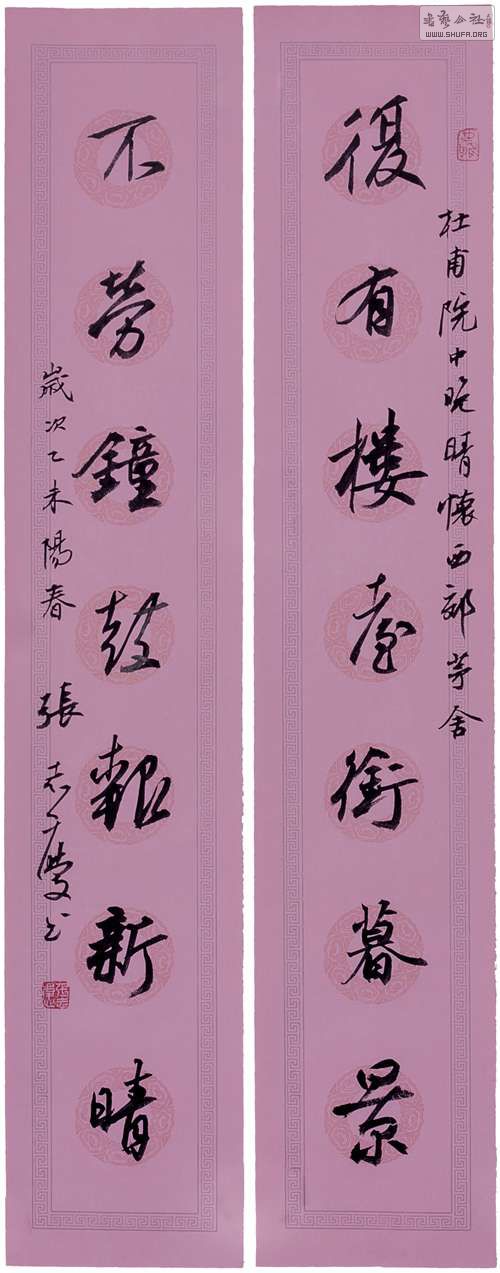 杜甫院中晚晴懷西郭茅舍
復有樓臺銜暮景
不勞鐘鼓報新晴
歲次乙未陽春 張志慶書
書藝公社
WWW.SHUFA.ORG